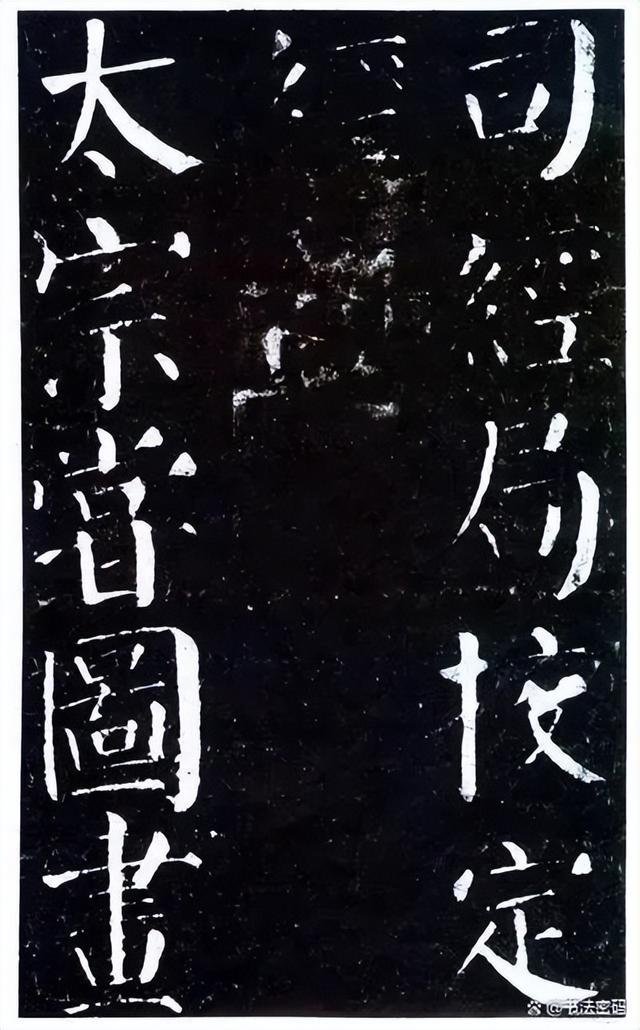 司經局校定
經
太宗嘗圖畫
@书法密码